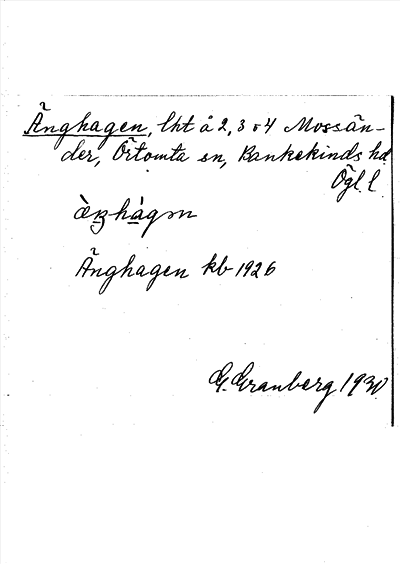 Änghagen, lht å 2, 3 o 4 Mossän-
der, Örtomta sn, Bankekinds hd
Ögl. l.
Änghagen kb 1926
G. Granberg 1930